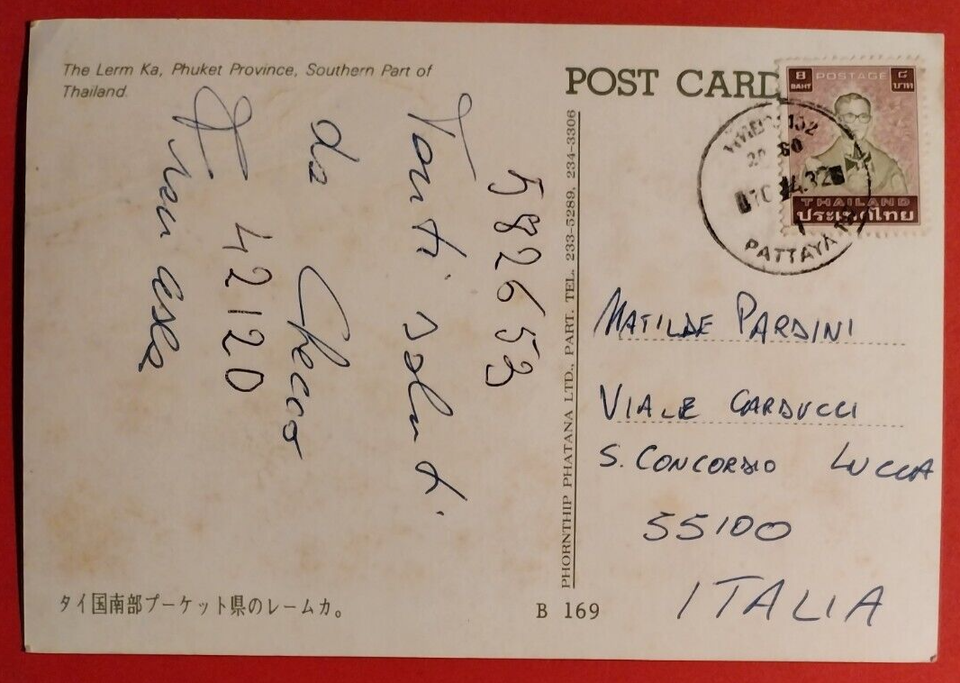 The Lerm Ka, Phuket Province, Southern Part of
Thailand.
POST CARD
8 POSTAGE ๘
BAHT บาท
THAILAND
ประเทศไทย
PATTAYA
5826653
Tanti saluti
da Checco
42120
PHORNTHIP PHATANA LTD., PART. TEL. 233-5289, 234-3306
MATILDE PARDINI
VIALE CARDUCCI
S. CONCORDIO LUCCA
55100
ITALIA
タイ国南部プーケット県のレームカ。
B 169